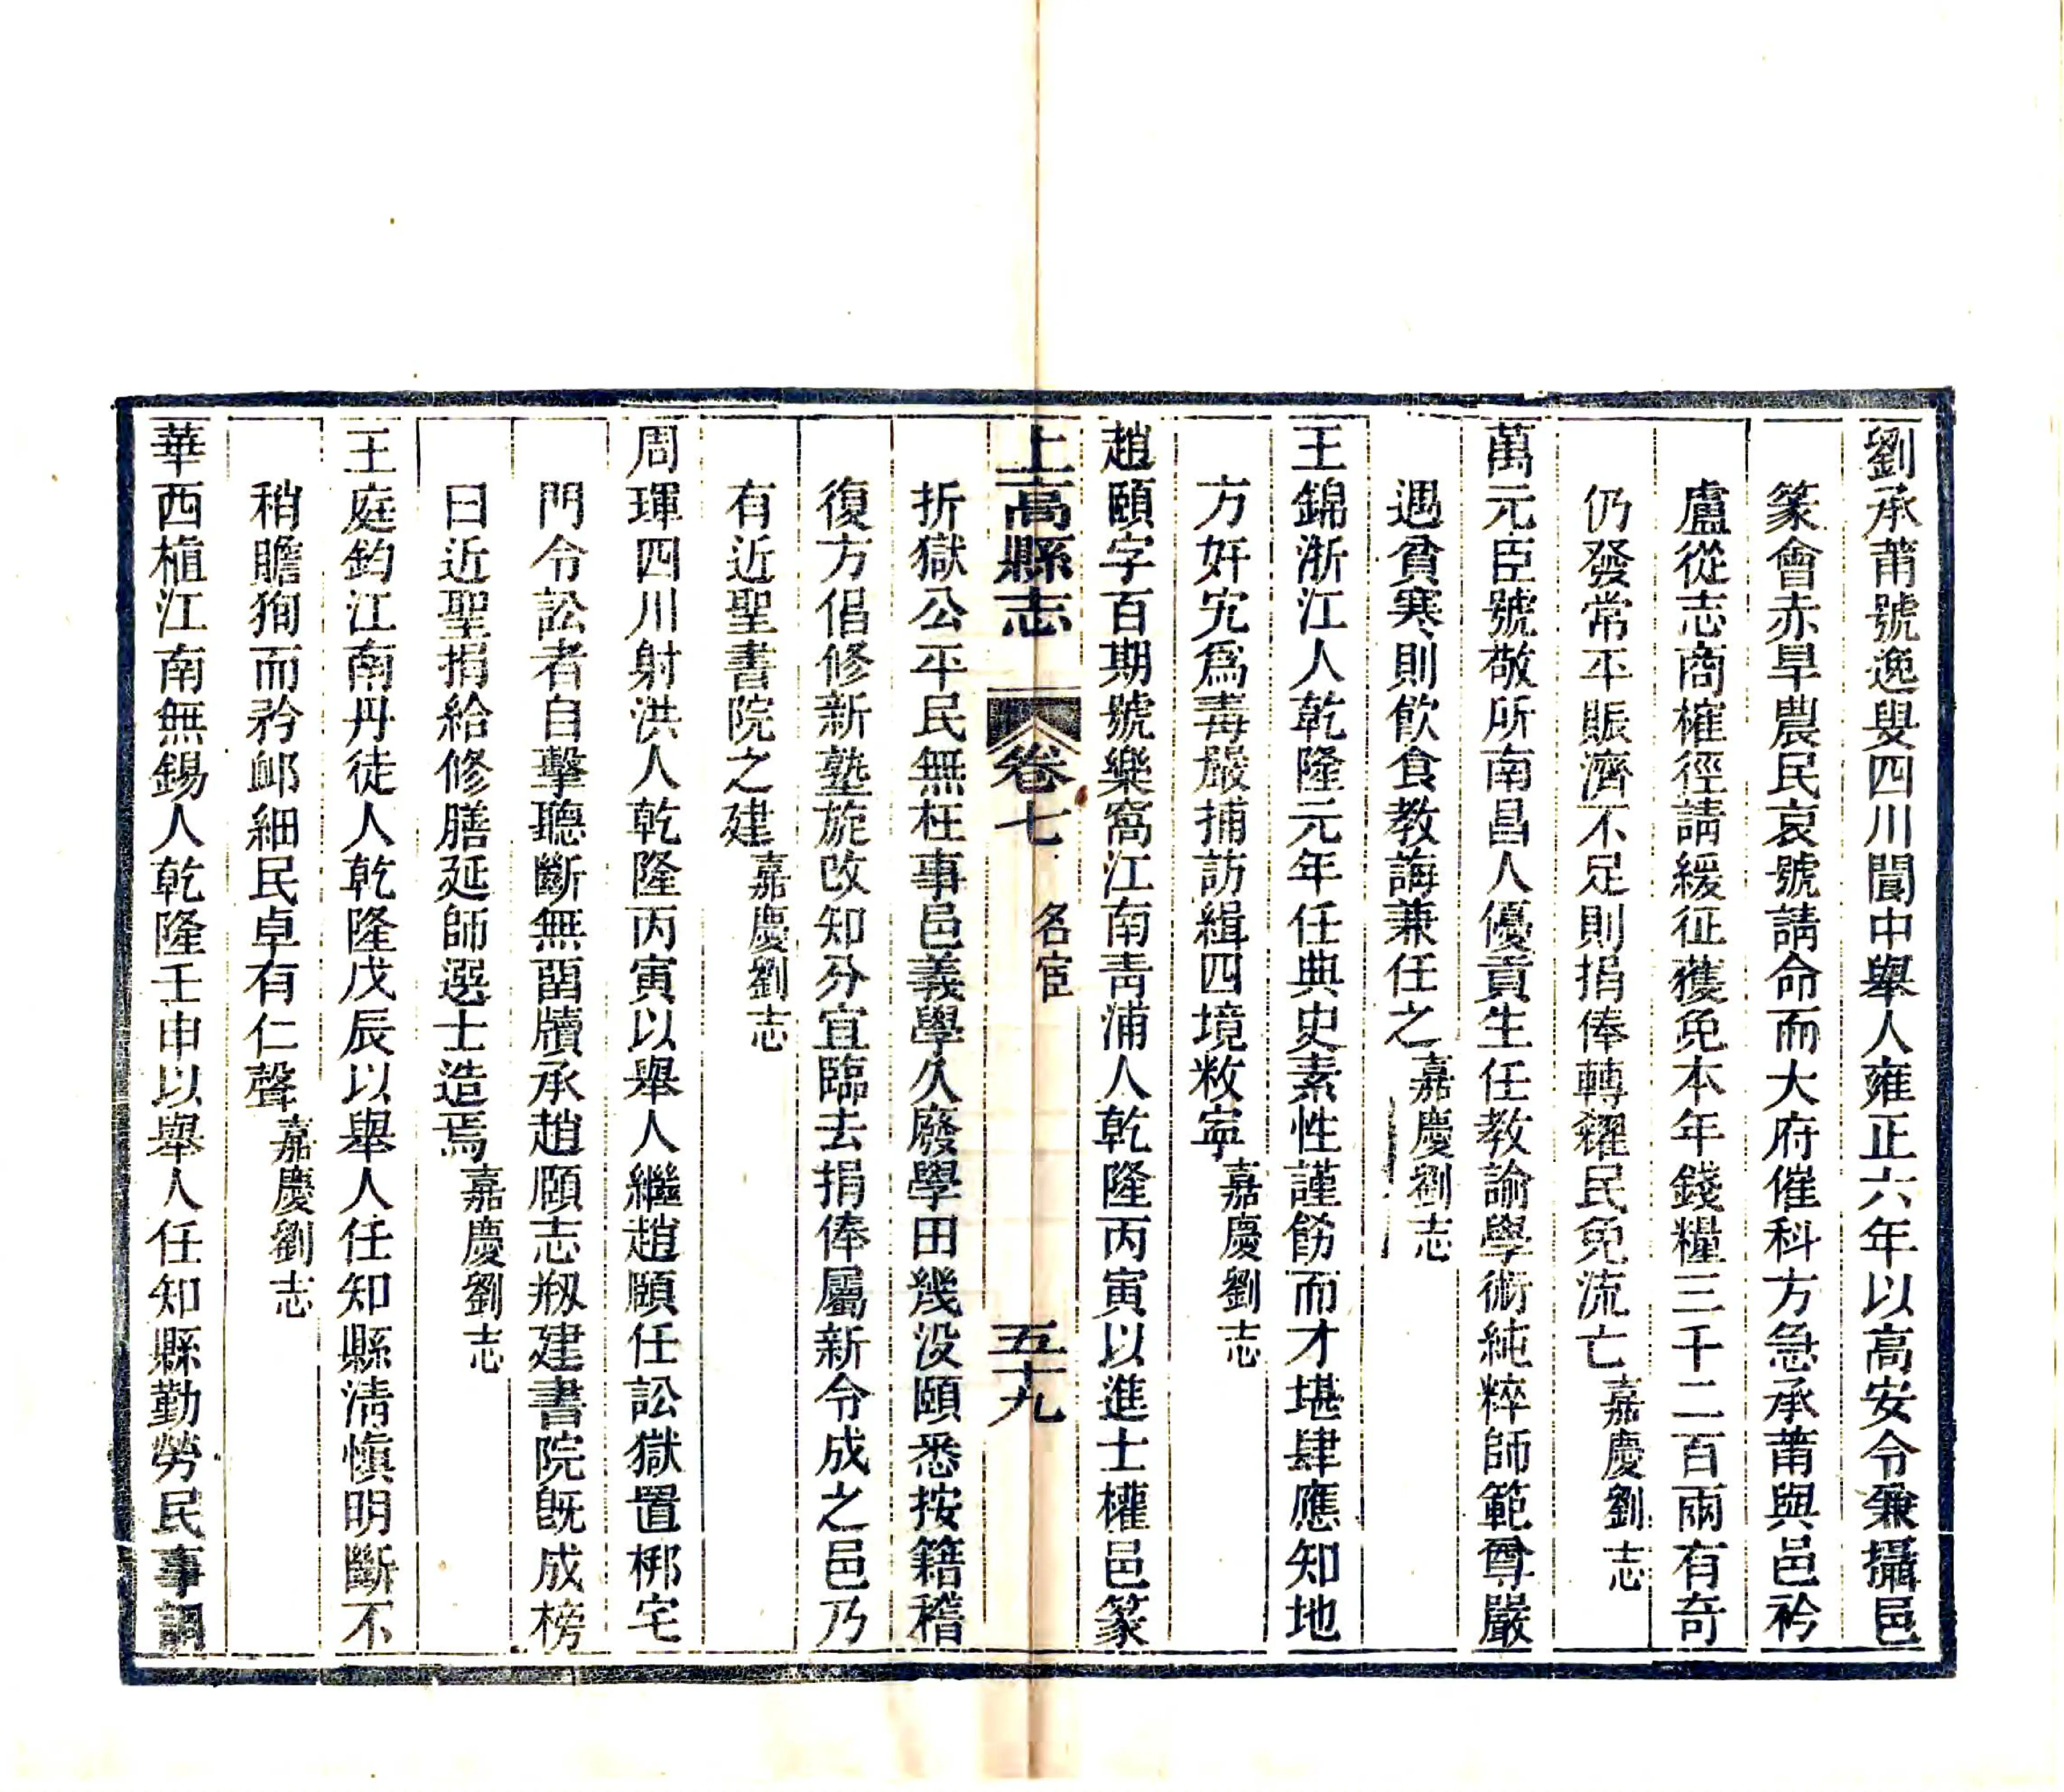 劉承莆號逸叟四川閬中舉人雍正六年以高安令兼攝邑
篆會赤旱農民哀號請命而大府催科方急承莆與邑衿
盧從志商榷徑請緩征獲免本年錢糧三千二百兩有奇
仍發常平賑濟不足則捐俸轉糴民免流亡嘉慶劉志
萬元臣號敬所南昌人優貢生任教諭學術純粹師範尊嚴
遇貧寒則飲食教誨兼任之嘉慶劉志
王錦浙江人乾隆元年任典史素性謹飭而才堪肆應知地
方奸宄爲毒嚴捕訪緝四境敉寧嘉慶劉志
趙頤字百期號樂窩江南青浦人乾隆丙寅以進士權邑篆
上高縣志 卷七 名宦 五十九
折獄公平民無枉事邑義學久廢學田幾没頤悉按籍稽
復方倡修新塾旋改知分宜臨去捐俸屬新令成之邑乃
有近聖書院之建嘉慶劉志
周琿四川射洪人乾隆丙寅以舉人繼趙頤任訟獄置梆宅
門令訟者自擊聽斷無畱牘承趙頤志剏建書院旣成榜
曰近聖捐給修膳延師選士造焉嘉慶劉志
王庭鈞江南丹徒人乾隆戊辰以舉人任知縣清愼明斷不
稍瞻狥而矜卹細民卓有仁聲嘉慶劉志
華西植江南無錫人乾隆壬申以舉人任知縣勤勞民事